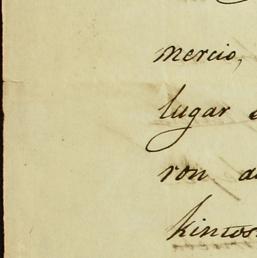 mercio,
lugar
ron
kintos